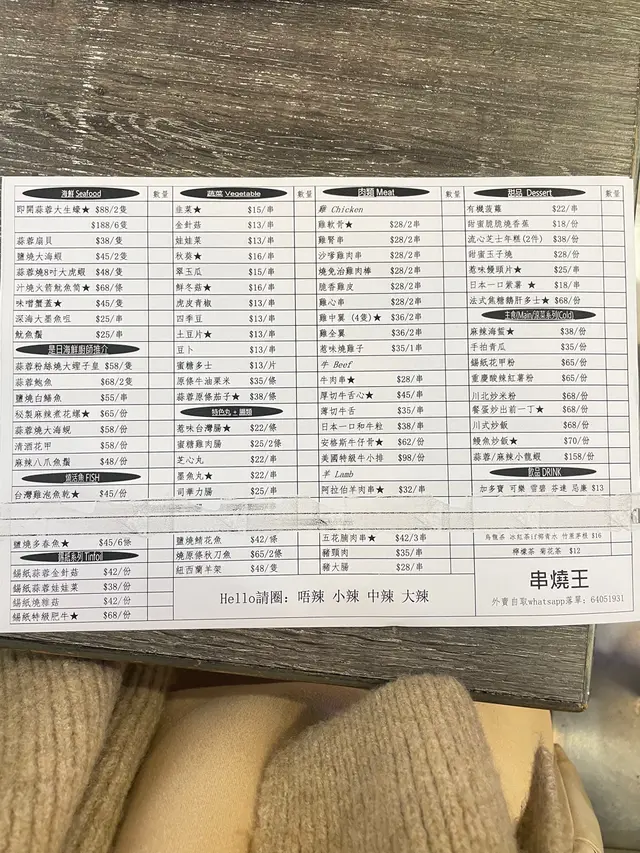 海鮮 Seafood 數量
即開蒜蓉大生蠔★ $88/2隻
$188/6隻
蒜蓉扇貝 $38/隻
鹽燒大海蝦 $45/2隻
蒜蓉燒8吋大虎蝦 $48/隻
汁燒大箭魷魚筒★ $68/條
味噌蟹蓋★ $45/隻
深海大墨魚咀 $25/串
魷魚鬚 $25/串
是日海鮮廚師推介
蒜蓉粉絲燒大蟶子皇 $58/隻
蒜蓉鮑魚 $68/2隻
鹽燒白鱔魚 $55/串
秘製麻辣煮花螺★ $65/份
蒜蓉燒大海蜆 $58/份
清酒花甲 $58/份
麻辣八爪魚鬚 $48/份
燒活魚 FISH
台灣雞泡魚乾★ $45/份
鹽燒多春魚★ $45/6條
錫紙系列 Tinfoil
錫紙蒜蓉金針菇 $42/份
錫紙蒜蓉娃娃菜 $38/份
錫紙燒雜菇 $42/份
錫紙特級肥牛★ $68/份
蔬菜 Vegetable 數量
韭菜★ $15/串
金針菇 $13/串
娃娃菜 $13/串
秋葵★ $16/串
翠玉瓜 $15/串
鮮冬菇★ $16/串
虎皮青椒 $13/串
四季豆 $13/串
土豆片★ $13/串
豆卜 $13/串
蜜糖多士 $13/片
原條牛油果米 $35/條
蒜蓉原條茄子★ $38/條
特色丸+腸類
惹味台灣腸★ $22/條
蜜糖雞肉腸 $25/2條
芝心丸 $22/串
墨魚丸★ $22/串
司華力腸 $25/串
鹽燒鯖花魚 $42/條
燒原條秋刀魚 $65/2條
紐西蘭羊架 $48/隻
肉類 Meat 數量
雞 Chicken
雞軟骨★ $28/2串
雞腎串 $28/2串
沙嗲雞肉串 $28/2串
燒免治雞肉棒 $28/2串
脆香雞皮 $28/2串
雞心串 $28/2串
雞中翼(4隻)★ $36/2串
雞全翼 $36/2串
惹味燒雞子 $35/1串
牛 Beef
牛肉串★ $28/串
厚切牛舌心★ $45/串
薄切牛舌 $35/串
日本一口和牛粒 $38/串
安格斯牛仔骨★ $62/份
美國特級牛小排 $98/份
羊 Lamb
阿拉伯羊肉串★ $32/串
五花腩肉串★ $42/3串
豬頸肉 $35/串
豬大腸 $28/串
甜品 Dessert 數量
有機菠蘿 $22/串
甜蜜脆脆燒香蕉 $18/份
流心芝士年糕(2件) $38/份
甜蜜玉子燒 $28/份
惹味饅頭片★ $25/串
日本一口紫薯★ $18/串
法式焦糖鵝肝多士★ $68/份
主食(Main/涼菜系列(Cold)
麻辣海蜇★ $38/份
手拍青瓜 $35/份
錫紙花甲粉 $65/份
重慶酸辣紅薯粉 $65/份
川北炒米粉 $68/份
餐蛋炒出前一丁★ $68/份
川式炒飯 $68/份
鰻魚炒飯★ $70/份
蒜蓉/麻辣小龍蝦 $158/份
飲品 DRINK
加多寶 可樂 雪碧 芬達 忌廉 $13
$16
檸檬茶 菊花茶 $12
Hello請圈：唔辣 小辣 中辣 大辣
串燒王
外賣自取whatsapp落單：64051931